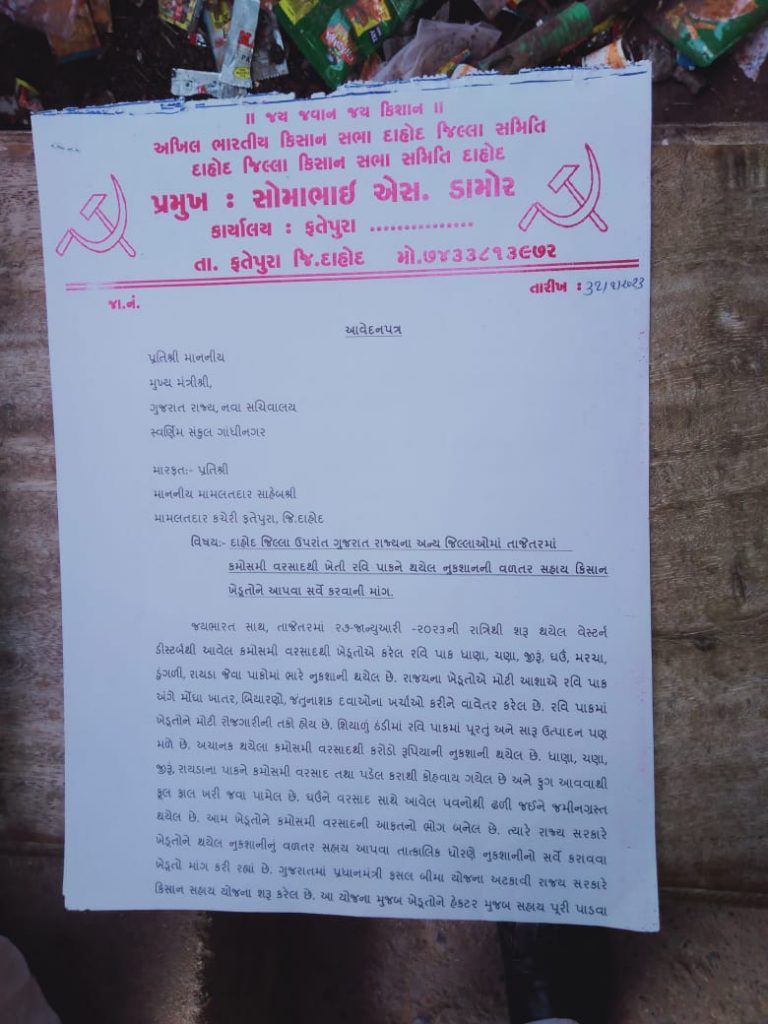 ॥ જય જવાન જય કિશાન ॥
અખિલ ભારતીય કિસાન સભા દાહોદ જિલ્લા સમિતિ
દાહોદ જિલ્લા કિસાન સભા સમિતિ દાહોદ
પ્રમુખ : સોમાભાઈ એસ. ડામોર
કાર્યાલય : ફતેપુરા ...............
તા. ફતેપુરા જિ.દાહોદ મો.૭૪૩૩૮૧૩૯૭૨
જા.નં. તારીખ :
આવેદનપત્ર
પ્રતિશ્રી માનનીય
મુખ્ય મંત્રીશ્રી,
ગુજરાત રાજ્ય, નવા સચિવાલય
સ્વર્ણિમ સંકુલ ગાંધીનગર
મારફત:- પ્રતિશ્રી
માનનીય મામલતદાર સાહેબશ્રી
મામલતદાર કચેરી ફતેપુરા, જિ.દાહોદ
વિષય:- દાહોદ જિલ્લા ઉપરાંત ગુજરાત રાજ્યના અન્ય જિલ્લાઓમાં તાજેતરમાં
કમોસમી વરસાદથી ખેતી રવિ પાકને થયેલ નુકશાનની વળતર સહાય કિસાન
ખેડૂતોને આપવા સર્વે કરવાની માંગ.
જયભારત સાથ, તાજેતરમાં ૨૭-જાન્યુઆરી -૨૦૨૩ની રાત્રિથી શરૂ થયેલ વેસ્ટર્ન
ડીસ્ટર્બથી આવેલ કમોસમી વરસાદથી ખેડૂતોએ કરેલ રવિ પાક ધાણા, ચણા, જીરૂં, ઘઉં, મરચા,
ડુંગળી, રાયડા જેવા પાકોમાં ભારે નુકશાની થયેલ છે. રાજ્યના ખેડૂતોએ મોટી આશાએ રવિ પાક
અંગે મોંઘા ખાતર, બિયારણો, જંતુનાશક દવાઓના ખર્ચાઓ કરીને વાવેતર કરેલ છે. રવિ પાકમાં
ખેડૂતોને મોટી રોજગારીની તકો હોય છે. શિયાળું ઠંડીમાં રવિ પાકમાં પૂરતું અને સારૂ ઉત્પાદન પણ
મળે છે. અચાનક થયેલા કમોસમી વરસાદથી કરોડો રૂપિયાની નુકશાની થયેલ છે. ધાણા, ચણા,
જીરૂં, રાયડાના પાકને કમોસમી વરસાદ તથા પડેલ કરાથી કોહવાય ગયેલ છે અને ફુગ આવવાથી
ફૂલ ફાલ ખરી જવા પામેલ છે. ઘઉંને વરસાદ સાથે આવેલ પવનોથી ઢળી જઈને જમીનગ્રસ્ત
થયેલ છે. આમ ખેડૂતોને કમોસમી વરસાદની આફતનો ભોગ બનેલ છે. ત્યારે રાજ્ય સરકારે
ખેડૂતોને થયેલ નુકશાનીનું વળતર સહાય આપવા તાત્કાલિક ધોરણે નુકશાનીનો સર્વે કરાવવા
ખેડૂતો માંગ કરી રહ્યાં છે. ગુજરાતમાં પ્રધાનમંત્રી ફસલ બીમા યોજના અટકાવી રાજય સરકારે
કિસાન સહાય યોજના શરૂ કરેલ છે. આ યોજના મુજબ ખેડૂતોને હેકટર મુજબ સહાય પૂરી પાડવા